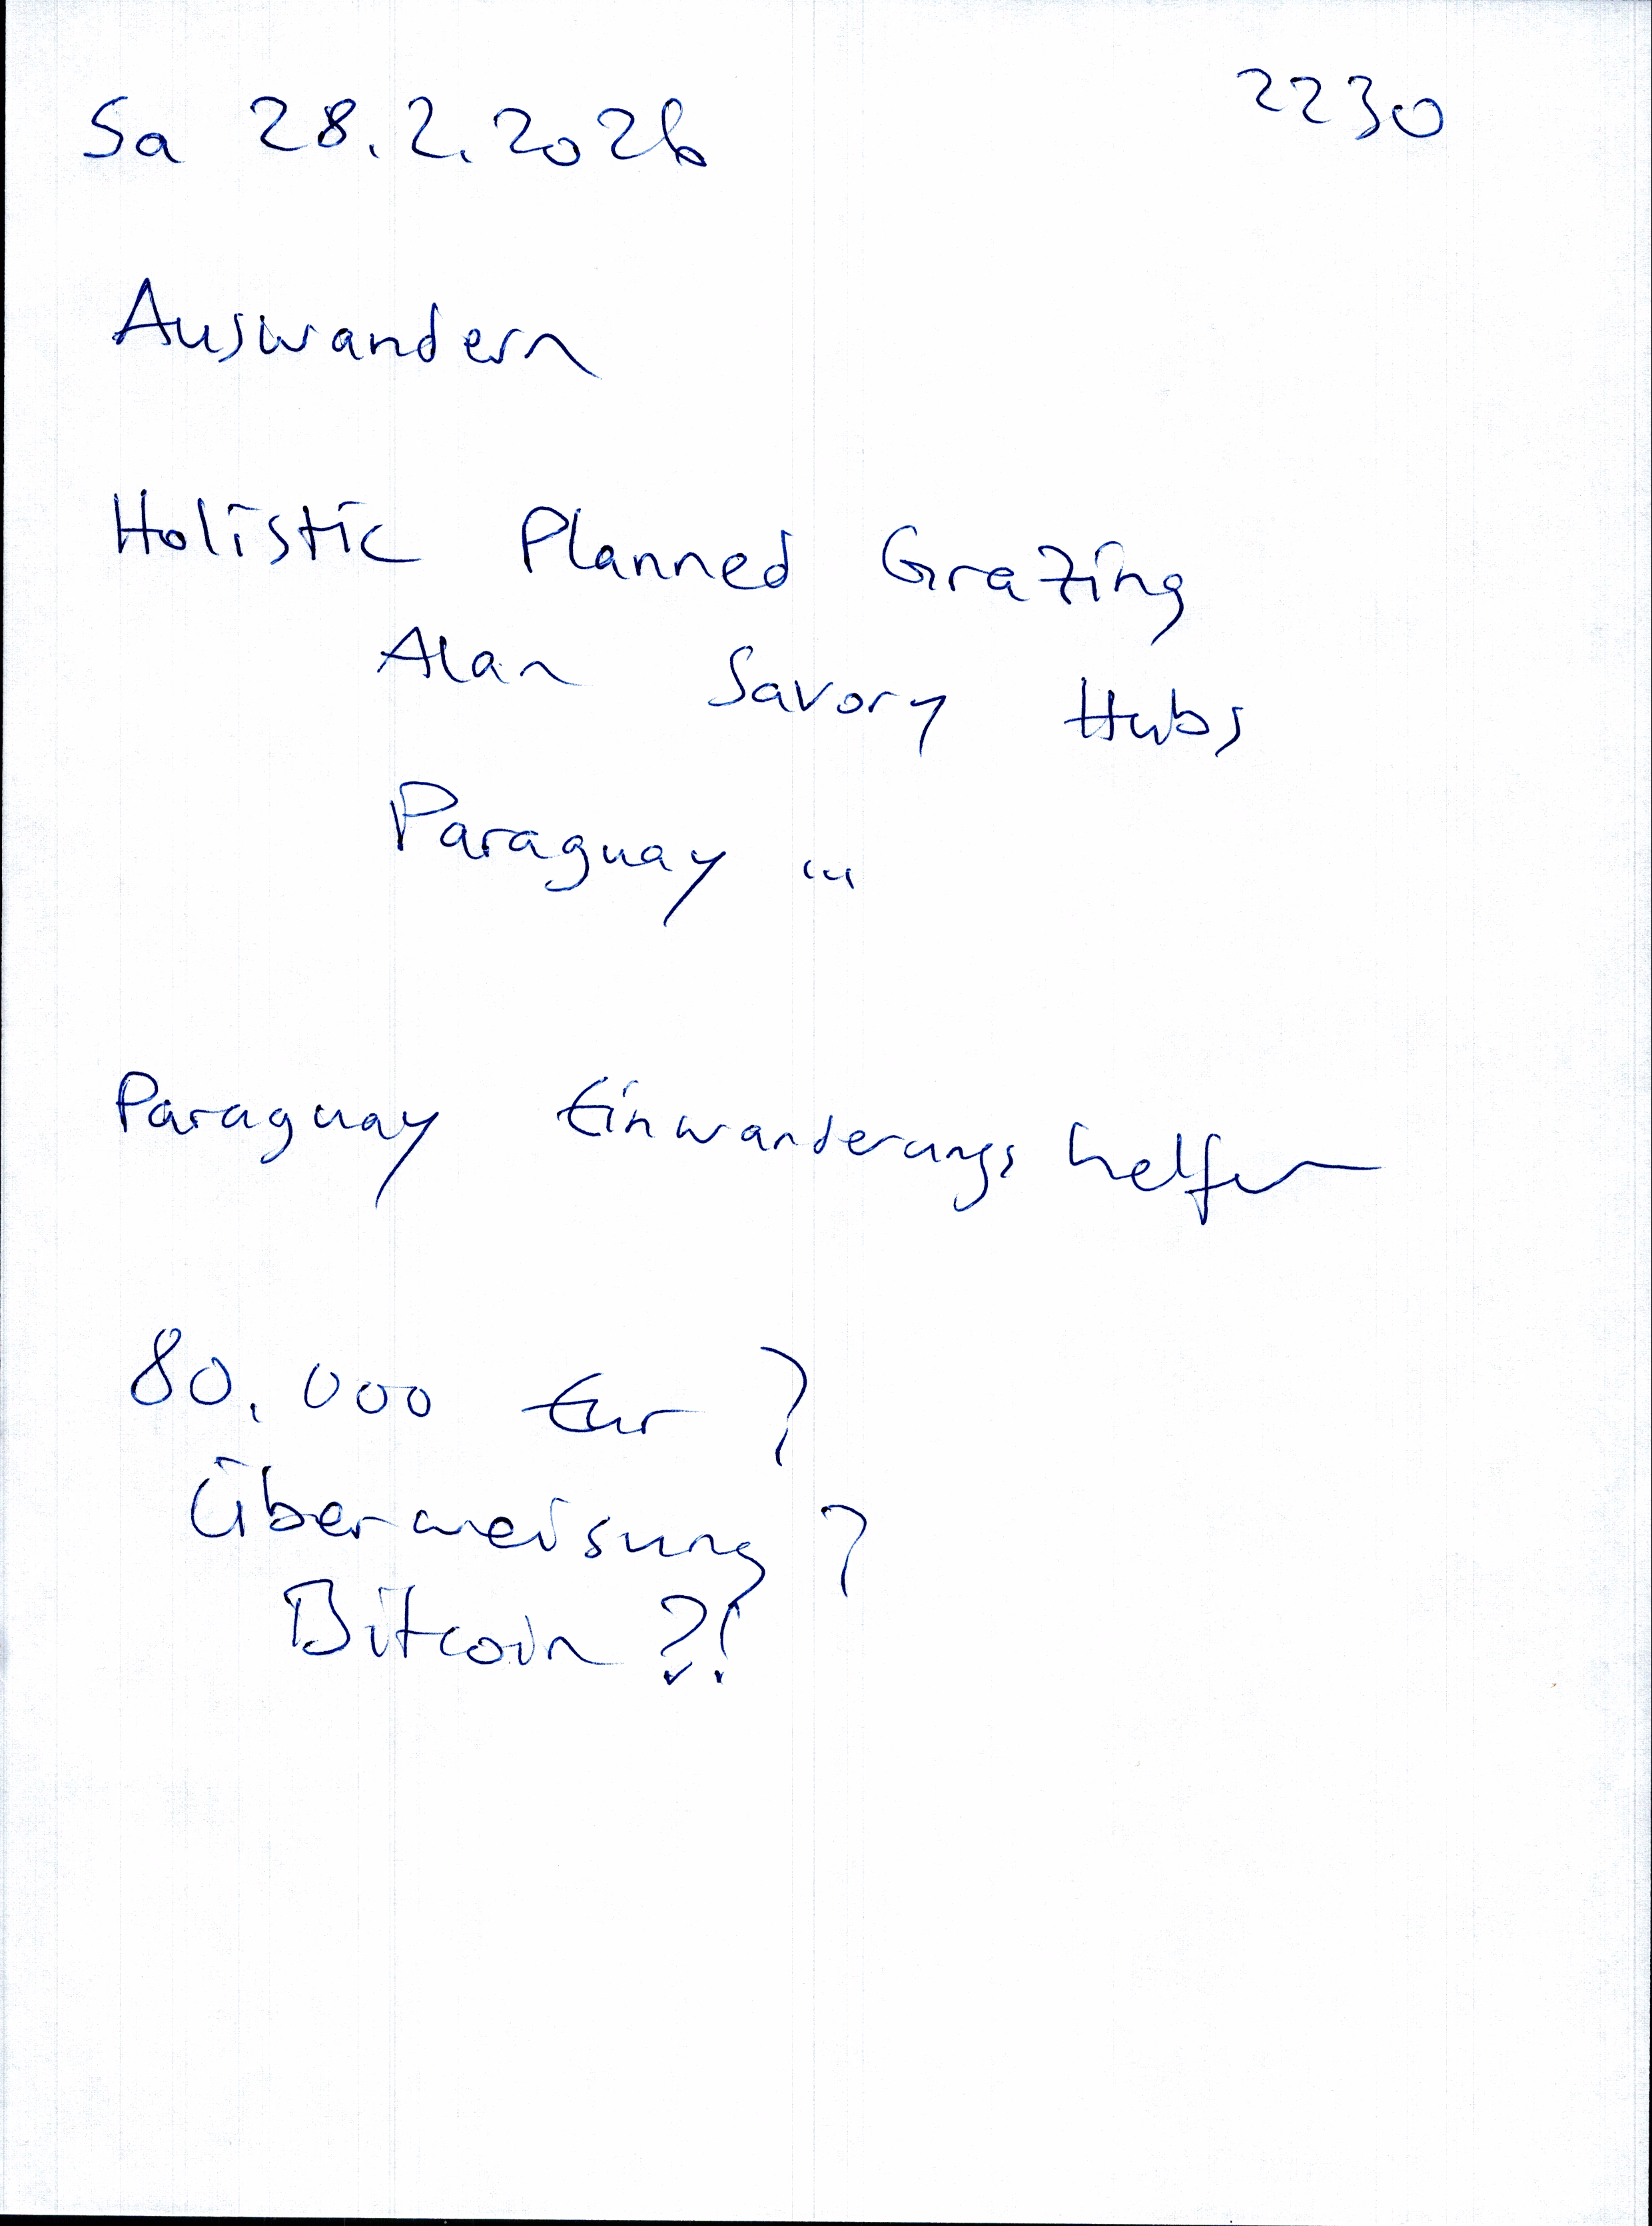 Sa 28.2.2026 2230
Auswandern
Holistic Planned Grazing
Alan Savory Hubs
Paraguay ...
Paraguay Einwanderungshelfer
80.000 Eur ?
Überweisung ?
Bitcoin ?!